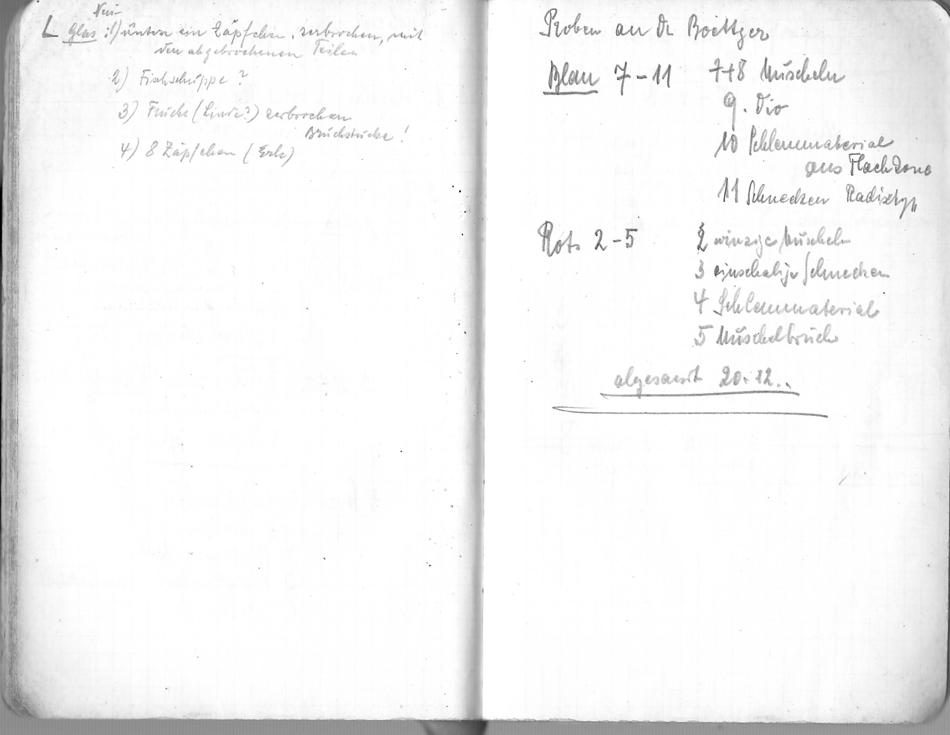 Neu
L Glas: 1) unten ein Zäpfchen, zerbrochen, mit
den abgebrochenen Teilen
2) Fischschuppe?
3) Früchte (Linde?) zerbrochen
Bruchstücke!
4) 8 Zäpfchen (Erle)
Proben an Dr Boettger
Blau 7-11 7+8 Muscheln
9. Dio
10 Schlemmaterial
aus Flachzone
11 Schnecken
Rot: 2-5 2 winzige Muscheln
3 einschalige Schnecken
4 Schlemmaterial
5 Muschelbruch
abgesandt 20.12.